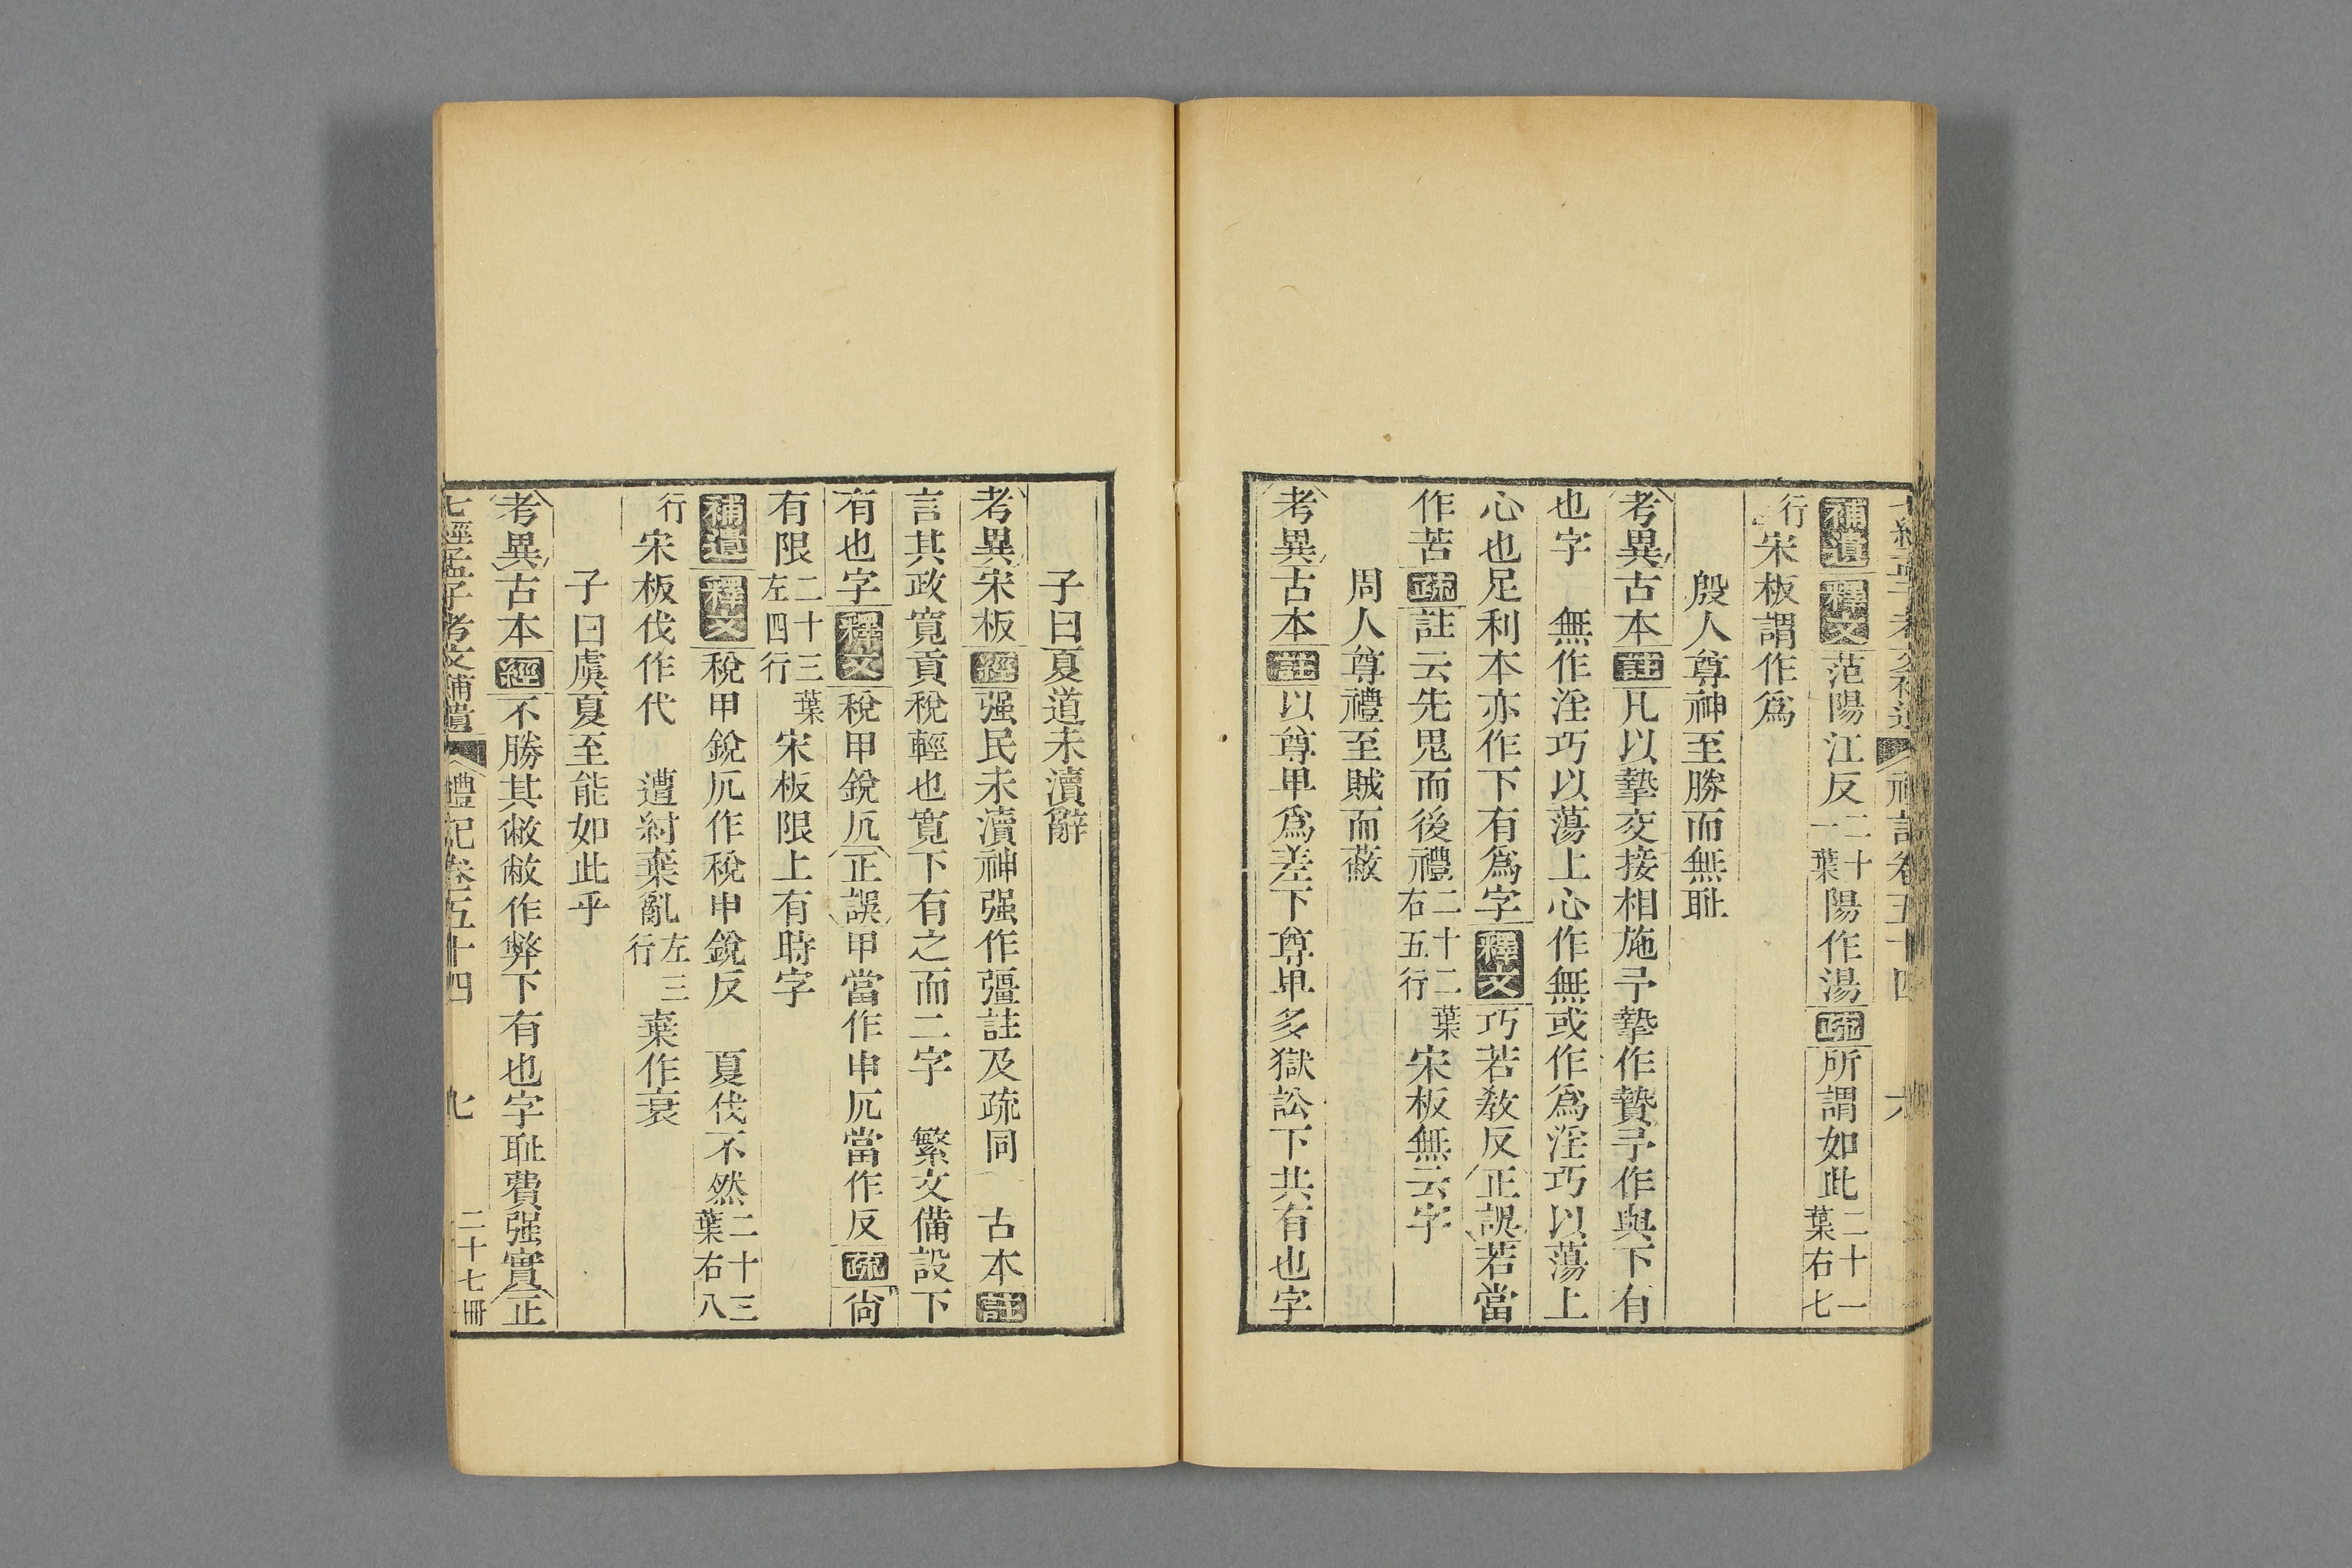 七經孟子考文補遺 禮記卷五十四 六
補遺 釋文 范陽江反二十一葉陽作湯 疏 所謂如此二十一葉右七
行宋板謂作爲
殷人尊神至勝而無耻
考異古本 註 凡以摯交接相施予摯作贄予作與下有
也字 無作淫巧以蕩上心作無或作爲淫巧以蕩上
心也足利本亦作下有爲字 釋文 巧若教反正誤若當
作苦 疏 註云先鬼而後禮二十二葉右五行宋板無云字
周人尊禮至賊而蔽
考異古本 註 以尊卑爲差下尊卑多獄訟下共有也字
子曰夏道未瀆辭
考異宋板 經 强民未瀆神强作彊註及疏同 古本 註
言其政寬貢稅輕也寬下有之而二字 繁文備設下
有也字 釋文 稅甲銳卮正誤甲當作申卮當作反 疏 尙
有限二十三葉左四行宋板限上有時字
補遺 釋文 稅甲銳卮作稅申銳反 夏伐不然二十三葉右八
行宋板伐作代 遭紂棄亂左三行棄作衰
子曰虞夏至能如此乎
考異古本 經 不勝其敝敝作弊下有也字耻費强實正
七經孟子考文補遺 禮記卷五十四 七 二十七冊